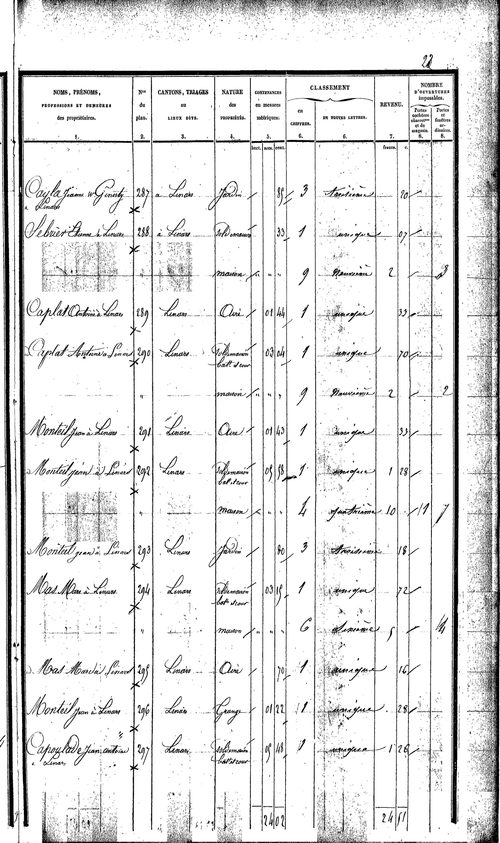 22
NOMS, PRÉNOMS, PROFESSIONS ET DEMEURES des propriétaires. 1.
Nos du plan. 2.
CANTONS, TRIAGES ou LIEUX DITS. 3.
NATURE des PROPRIÉTÉS. 4.
CONTENANCES en mesures métriques. 5.
CLASSEMENT
en CHIFFRES. 6.
EN TOUTES LETTRES. 6.
REVENU. 7.
NOMBRE D'OUVERTURES imposables.
Portes cochères charretières et de magasin. 8.
Portes et fenêtres ordinaires. 8.
hect. ares. cent. francs. c.
Cayla 287 à Linars Jardin 85 3 troisième 20
à Linars
Sebrier à Linars 288 à Linars 33 1 unique 07
" maison " " 9 neuvième 2 3
Caplat Antoine à Linars 289 Linars Aire 01 44 1 unique 33
Caplat Antoine à Linars 290 Linars 03 04 1 unique 70
" maison " " 9 neuvième 2 2
Monteil Jean à Linars 291 Linars Aire 01 43 1 unique 33
Monteil Jean à Linars 292 Linars 05 58 1 unique 1 28
" maison " " 4 quatrième 10 1 7
Monteil Jean à Linars 293 Linars Jardin 80 3 troisième 18
Mas Marc à Linars 294 Linars 03 15 1 unique 72
" maison " " 6 sixième 5 4
Mas Marc à Linars 295 Linars Aire 70 1 unique 16
Monteil Jean à Linars 296 Linars Grange 01 22 1 unique 28
Capoulade Jean Antoine 297 Linars 05 48 1 unique 1 26
à Linars
24 02 24 51